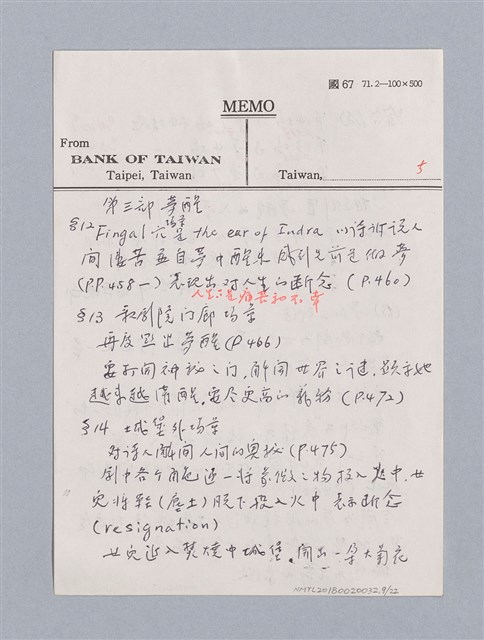 國 67 71. 2—100×500
MEMO
From
BANK OF TAIWAN
Taipei, Taiwan
Taiwan,
5
第三部 夢醒
§12 Fingal 穴場景是 the ear of Indra 以詩訴說人
間淒苦 並自夢中醒來 感到先前是做夢
(P.P.458一) 表現出对人生的断念 (P.460)
人生六是痛苦和不幸
§13 歌劇院门廊場景
再度点出夢醒 (P.466)
要打開神秘之门,解開世界之謎,顕示她
越來越清醒,要尽更高的義務 (P.472)
§14 土城堡外場景
对詩人解開人間的奧秘 (P.475)
劇中各个角色逐一將象徵之物投入火中,女
兒將鞋(塵土)脫下投入火中 表示断念
(resignation)
女兒進入焚燒中城堡,開出一朵大菊花
NMTL20180020032,9/22